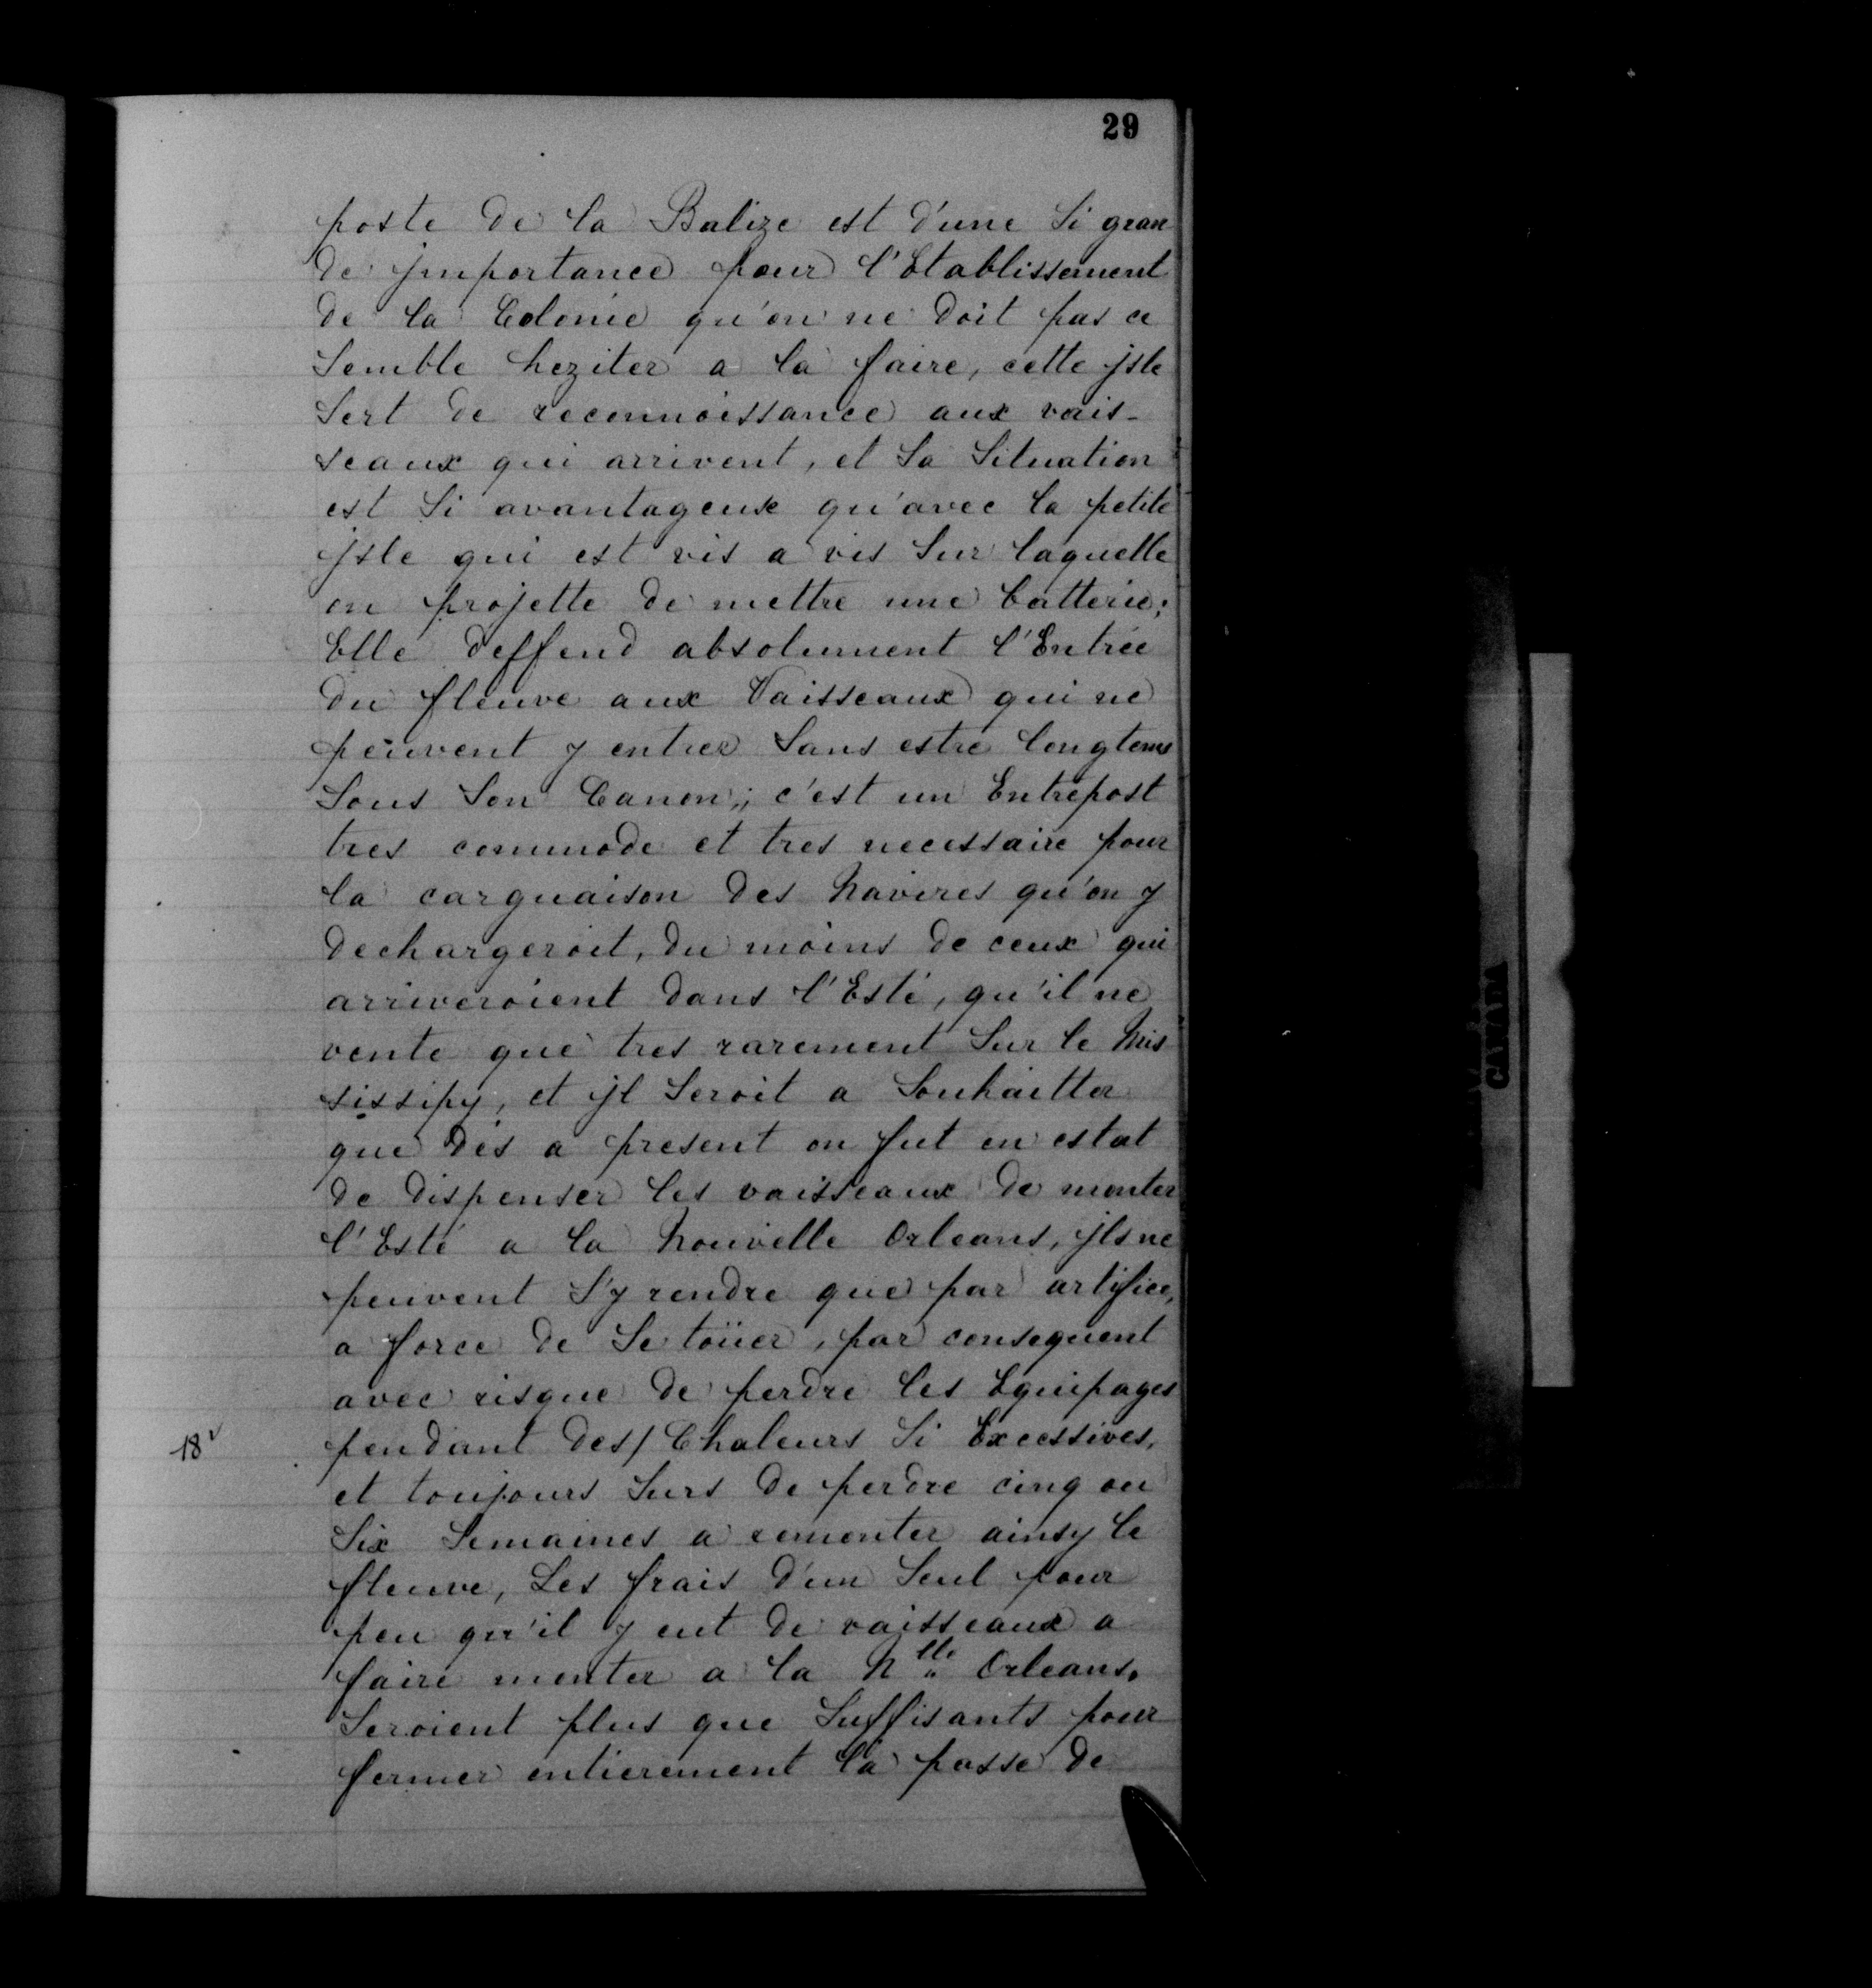 29
poste de la Balize est d'une Si gran
de jmportance pour l'Etablissement
de la Colonie qu'on ne doit pas ce
Semble heziter a la faire, cette jsle
Sert de reconnoissance aux vais-
seaux qui arrivent, et Sa Situation
est Si avantageuse qu'avec la petite
jsle qui est vis a vis Sur laquelle
on projette de mettre une batterie;
Elle deffend absolument l'Entrée
du fleuve aux Vaisseaux qui ne
peuvent y entrer Sans estre longtems
Sous Son Canon; c'est un Entrepost
tres commode et tres necessaire pour
la carguaison des Navires qu'on y
dechargeroit, du moins de ceux qui
arriveroient dans l'Esté, qu'il ne
vente que tres rarement Sur le Mis
sissipy, et jl Seroit a Souhaitter
que dés a present on fut en estat
de dispenser les vaisseaux de monter
l'Esté a la Nouvelle Orleans, jls ne
peuvent S'y rendre que par artifice,
a force de Se toüer, par consequent
avec risque de perdre les Equipages
18v pendant des/Chaleurs Si Excessives,
et toujours Surs de perdre cinq ou
Six Semaines a remonter ainsy le
fleuve, Les frais d'un Seul pour
peu qu'il y eut de vaisseaux a
faire monter a la Nlle Orleans,
Seroient plus que Suffisants pour
fermer entierement la passe de